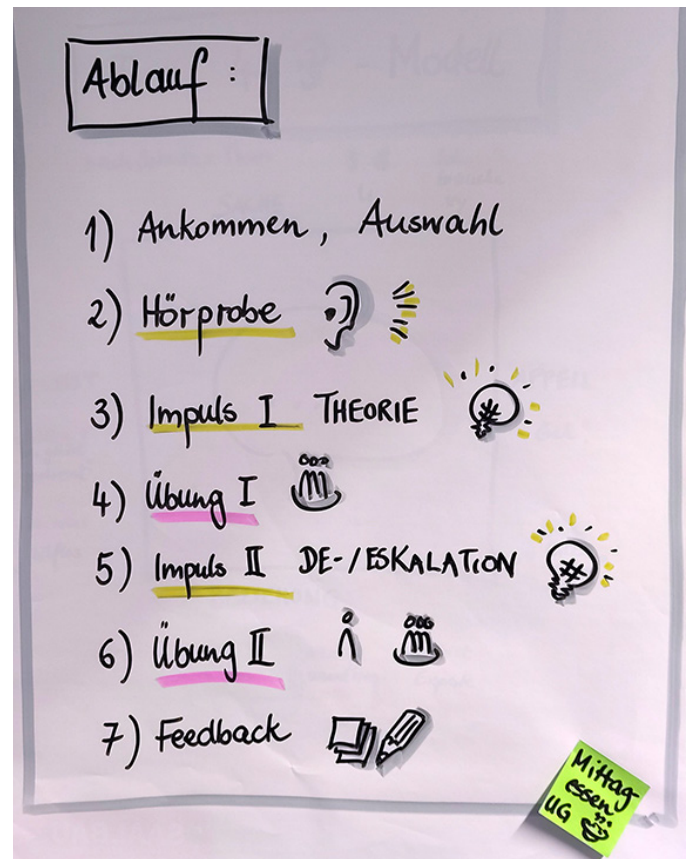 Ablauf :
1) Ankommen, Auswahl
2) Hörprobe
3) Impuls I THEORIE
4) Übung I
5) Impuls II DE-/ESKALATION
6) Übung II
7) Feedback
Mittag
essen
UG